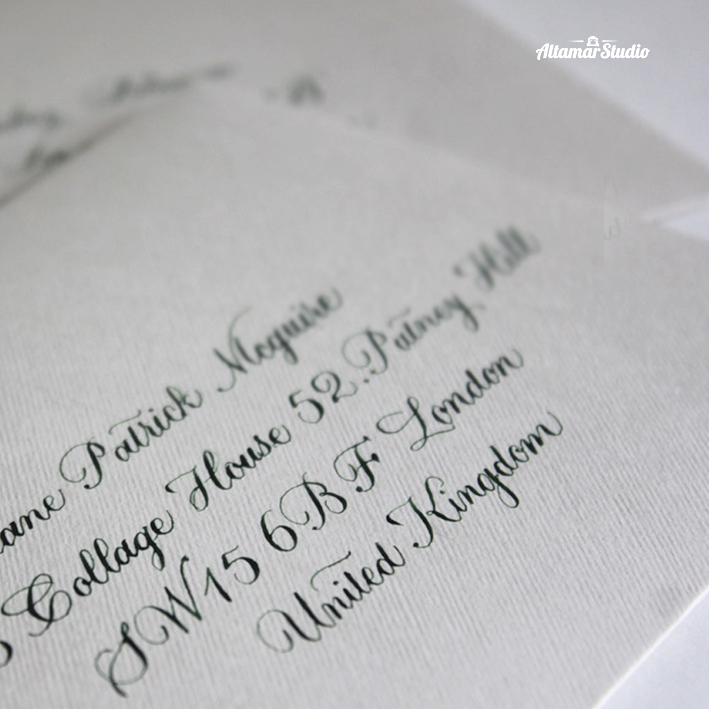 AltamarStudio
Patrick Mcguire
Collage House 52. Putney Hill
SW15 6BF London
United Kingdom